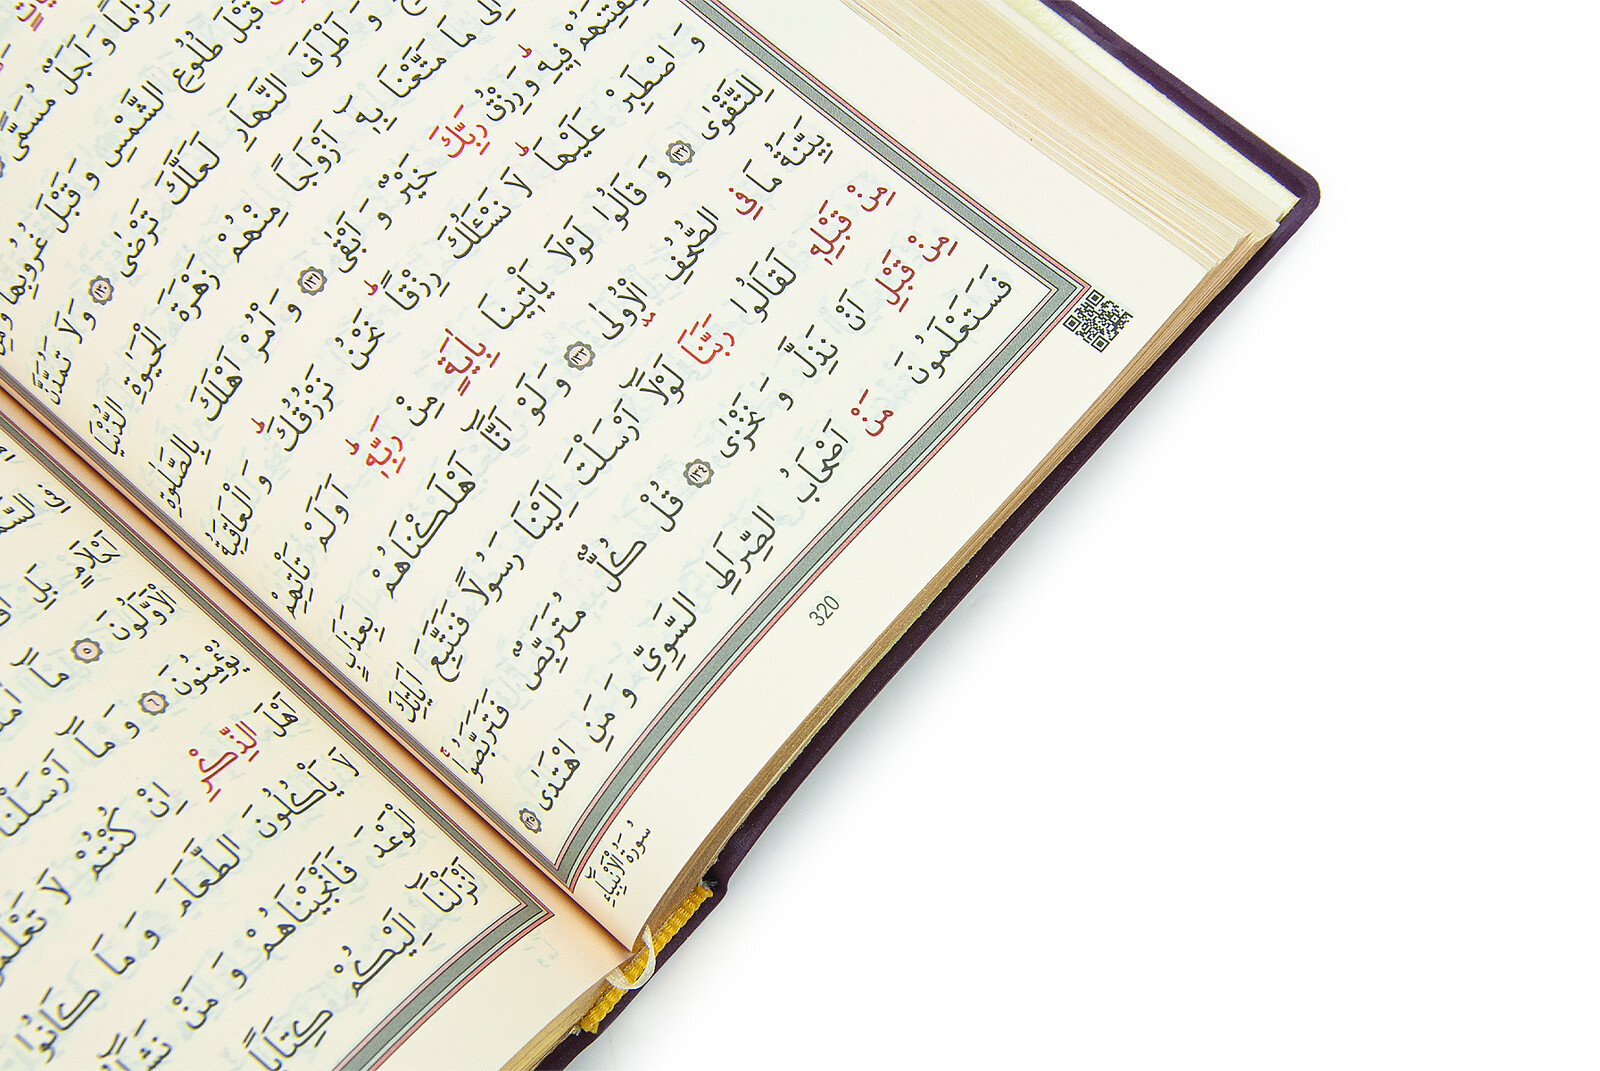 لِزَامًا وَ اَجَلٌ مُسَمًّى
قَبْلَ طُلُوعِ الشَّمْسِ وَ قَبْلَ غُرُوبِهَا وَمِنْ
وَ اَطْرَافَ النَّهَارِ لَعَلَّكَ تَرْضٰى ﴿١٣٠﴾ وَلَا تَمُدَّنَّ
اِلٰى مَا مَتَّعْنَا بِهِٓ اَزْوَاجًا مِنْهُمْ زَهْرَةَ الْحَيٰوةِ الدُّنْيَا
لِنَفْتِنَهُمْ فِيهِ وَرِزْقُ رَبِّكَ خَيْرٌ وَ اَبْقٰى ﴿١٣١﴾ وَ اْمُرْ اَهْلَكَ بِالصَّلٰوةِ
وَ اصْطَبِرْ عَلَيْهَا لَا نَسْـَٔلُكَ رِزْقًا نَحْنُ نَرْزُقُكَ وَ الْعَاقِبَةُ
لِلتَّقْوٰى ﴿١٣٢﴾ وَ قَالُوا لَوْلَا يَأْتِينَا بِاٰيَةٍ مِنْ رَبِّهِ اَوَلَمْ تَأْتِهِمْ
بَيِّنَةُ مَا فِي الصُّحُفِ الْاُولٰى ﴿١٣٣﴾ وَ لَوْ اَنَّٓا اَهْلَكْنَاهُمْ بِعَذَابٍ
مِنْ قَبْلِهِ لَقَالُوا رَبَّنَا لَوْلَٓا اَرْسَلْتَ اِلَيْنَا رَسُولًا فَنَتَّبِعَ اٰيَاتِكَ
مِنْ قَبْلِ اَنْ نَذِلَّ وَ نَخْزٰى ﴿١٣٤﴾ قُلْ كُلٌّ مُتَرَبِّصٌ فَتَرَبَّصُوا
فَسَتَعْلَمُونَ مَنْ اَصْحَابُ الصِّرَاطِ السَّوِيِّ وَ مَنِ اهْتَدٰى ﴿١٣٥﴾
320
سُورَةُ الْاَنْبِيَاءِ
فِي
اَحْلَامٍ بَلِ
الْاَوَّلُونَ ﴿٥﴾ مَٓا
يُؤْمِنُونَ ﴿٦﴾ وَ مَٓا اَرْسَلْنَا
اَهْلَ الذِّكْرِ اِنْ كُنْتُمْ لَا
لَا يَأْكُلُونَ الطَّعَامَ وَ مَا كَانُوا
الْوَعْدَ فَاَنْجَيْنَاهُمْ وَ مَنْ نَشَٓاءُ
اَنْزَلْنَٓا اِلَيْكُمْ كِتَابًا